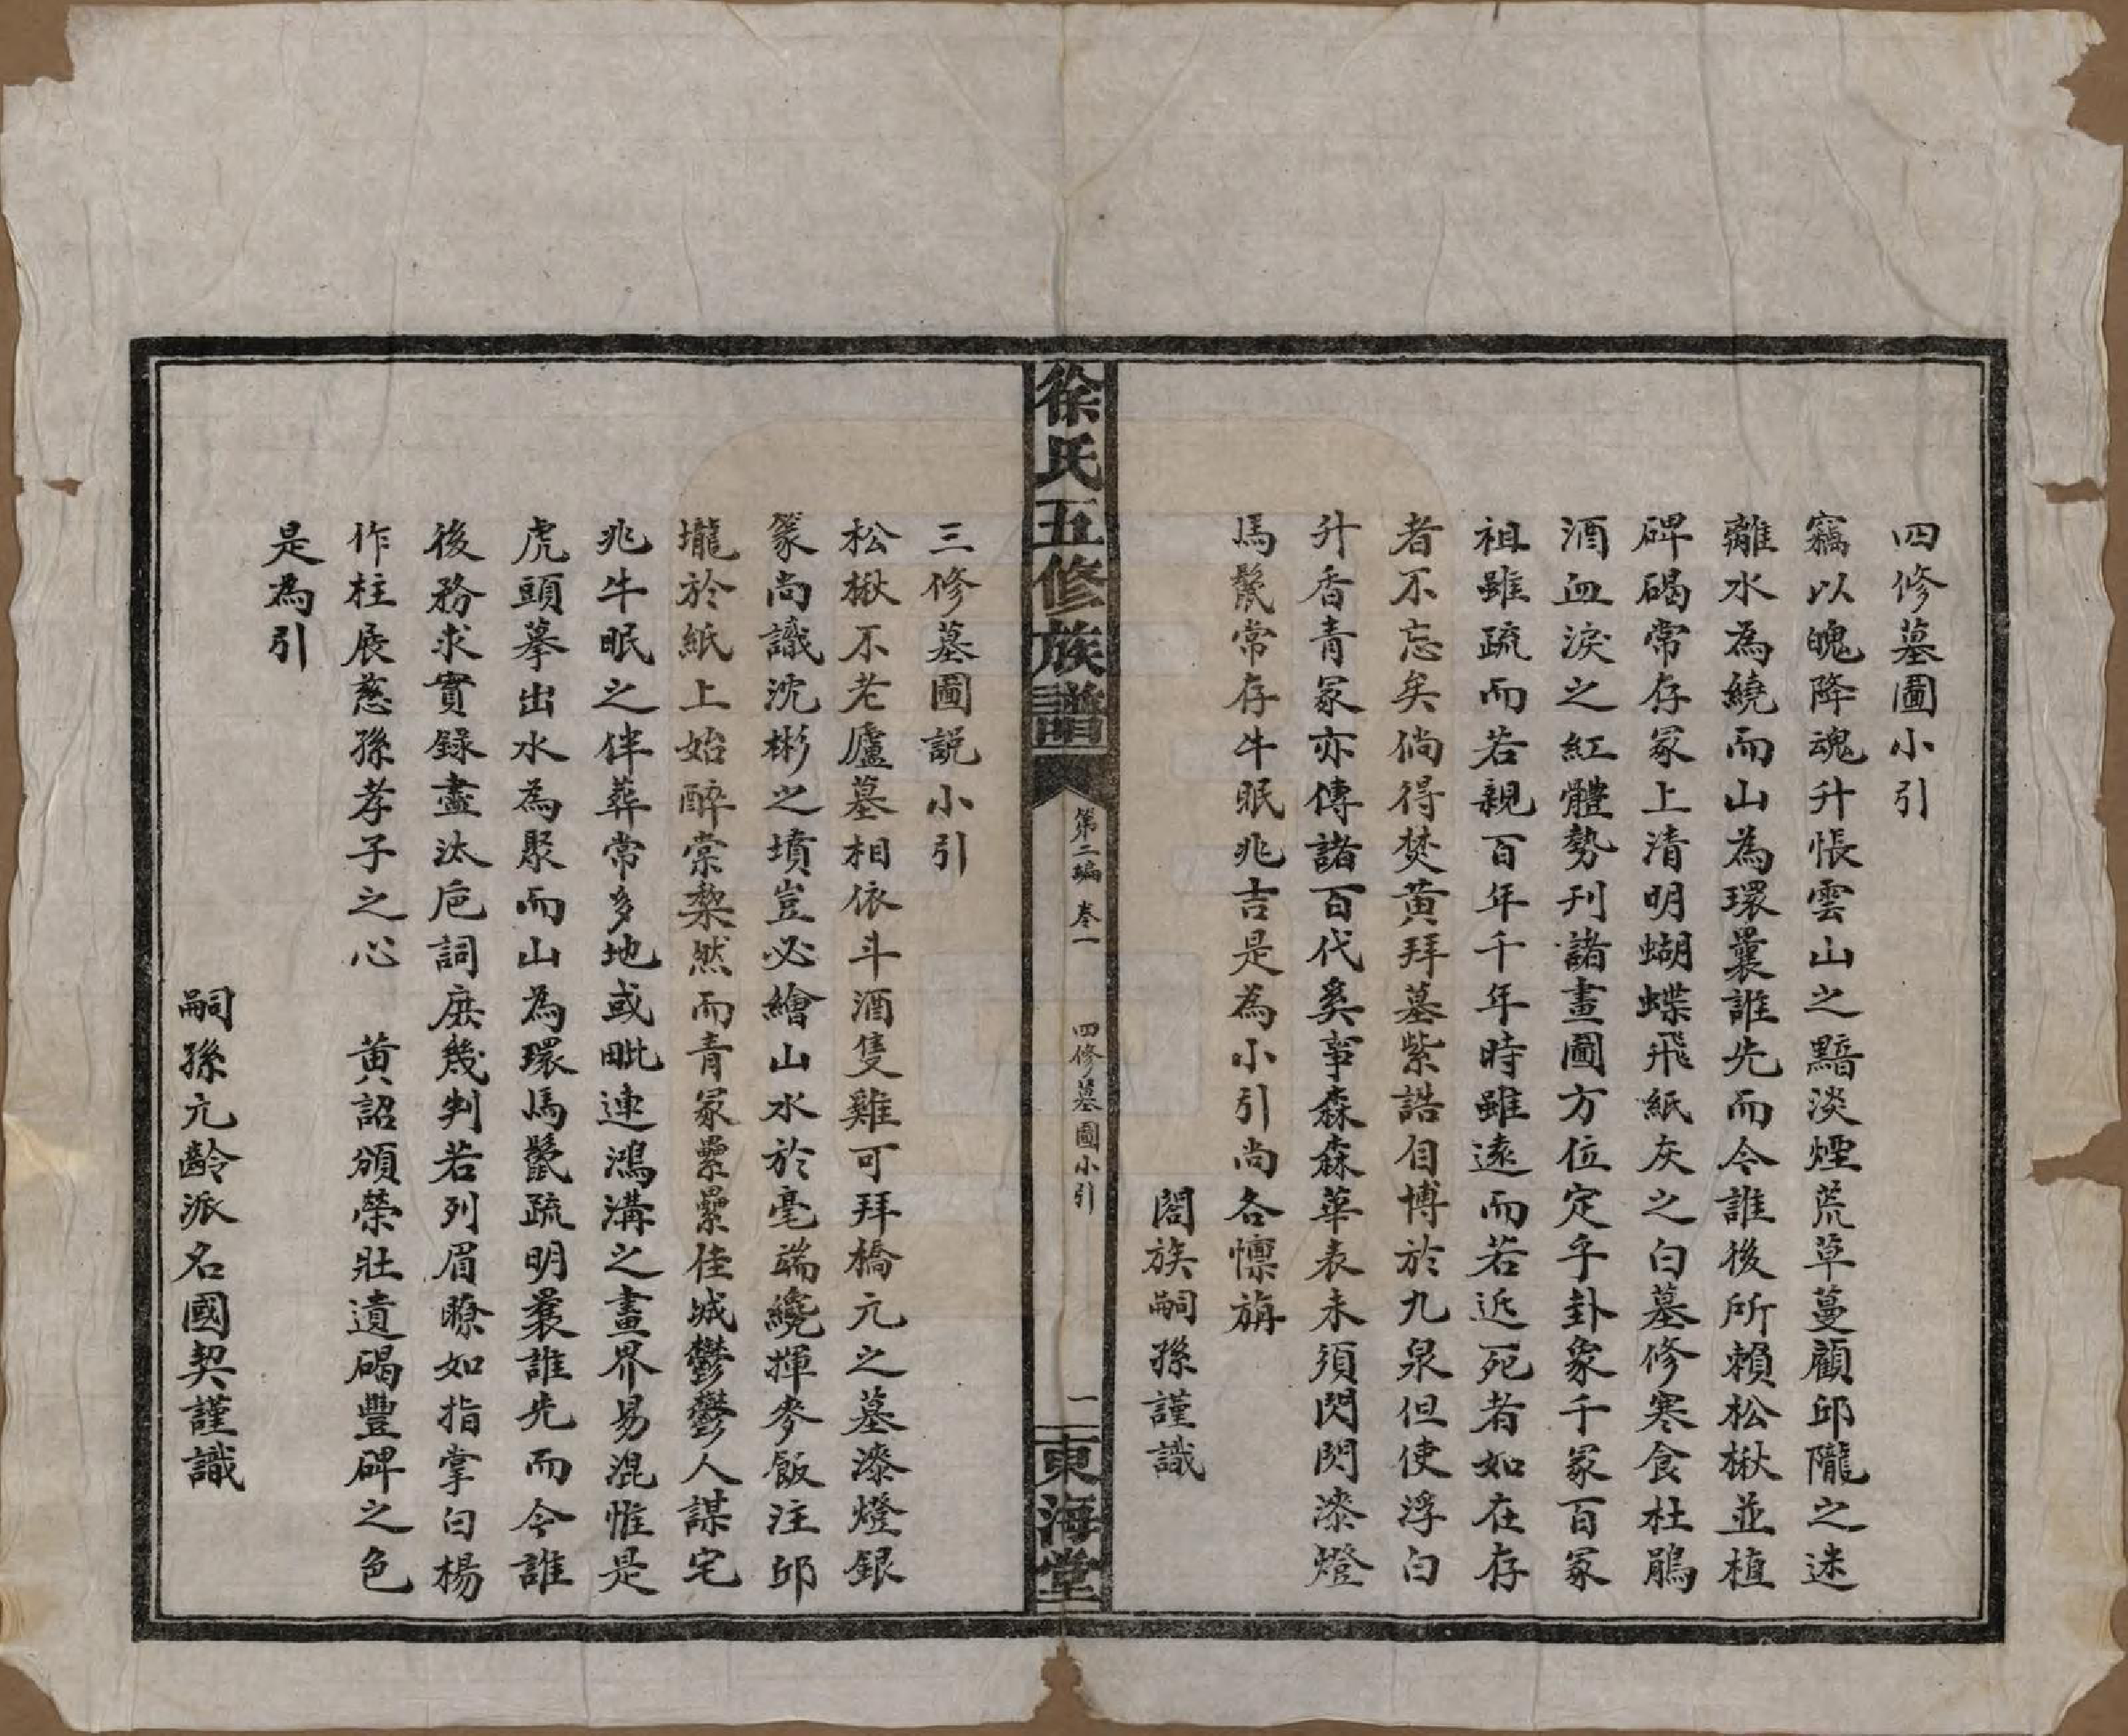 四修墓圖小引
竊以魄降魂升悵雲山之黯淡煙荒草蔓顧邱隴之迷
離水為繞而山為環曩誰先而今誰後所賴松楸並植
碑碣常存冢上清明蝴蝶飛紙灰之白墓修寒食杜鵑
酒血淚之紅體勢刋諸畫圖方位定乎卦象千冢百冢
祖雖疏而若親百年千年時雖遠而若近死者如在存
者不忘矣倘得焚黃拜墓紫誥自博於九泉但使浮白
升香青冢亦傳諸百代奚事森森華表未須閃閃漆燈
馬鬣常存牛眠兆吉是為小引尚各懍旃
閤族嗣孫謹識
徐氏五修族譜
第二編 卷一
四修墓圖小引
一
東海堂
三修墓圖説小引
松楸不老廬墓相依斗酒隻雞可拜橋元之墓漆燈銀
篆尚識沈彬之墳豈必繪山水於毫端纔揮麥飯注邱
壠於紙上始醉棠棃然而青冢纍纍佳城鬱鬱人謀宅
兆牛眠之伴葬常多地或毗連鴻溝之畫界易混惟是
虎頭摹出水為聚而山為環馬鬣疏明曩誰先而今誰
後務求實録盡汰巵詞庶幾判若列眉瞭如指掌白楊
作柱展慈孫孝子之心　黃詔頒榮壯遺碣豐碑之色
是為引
嗣孫元齡派名國契謹識